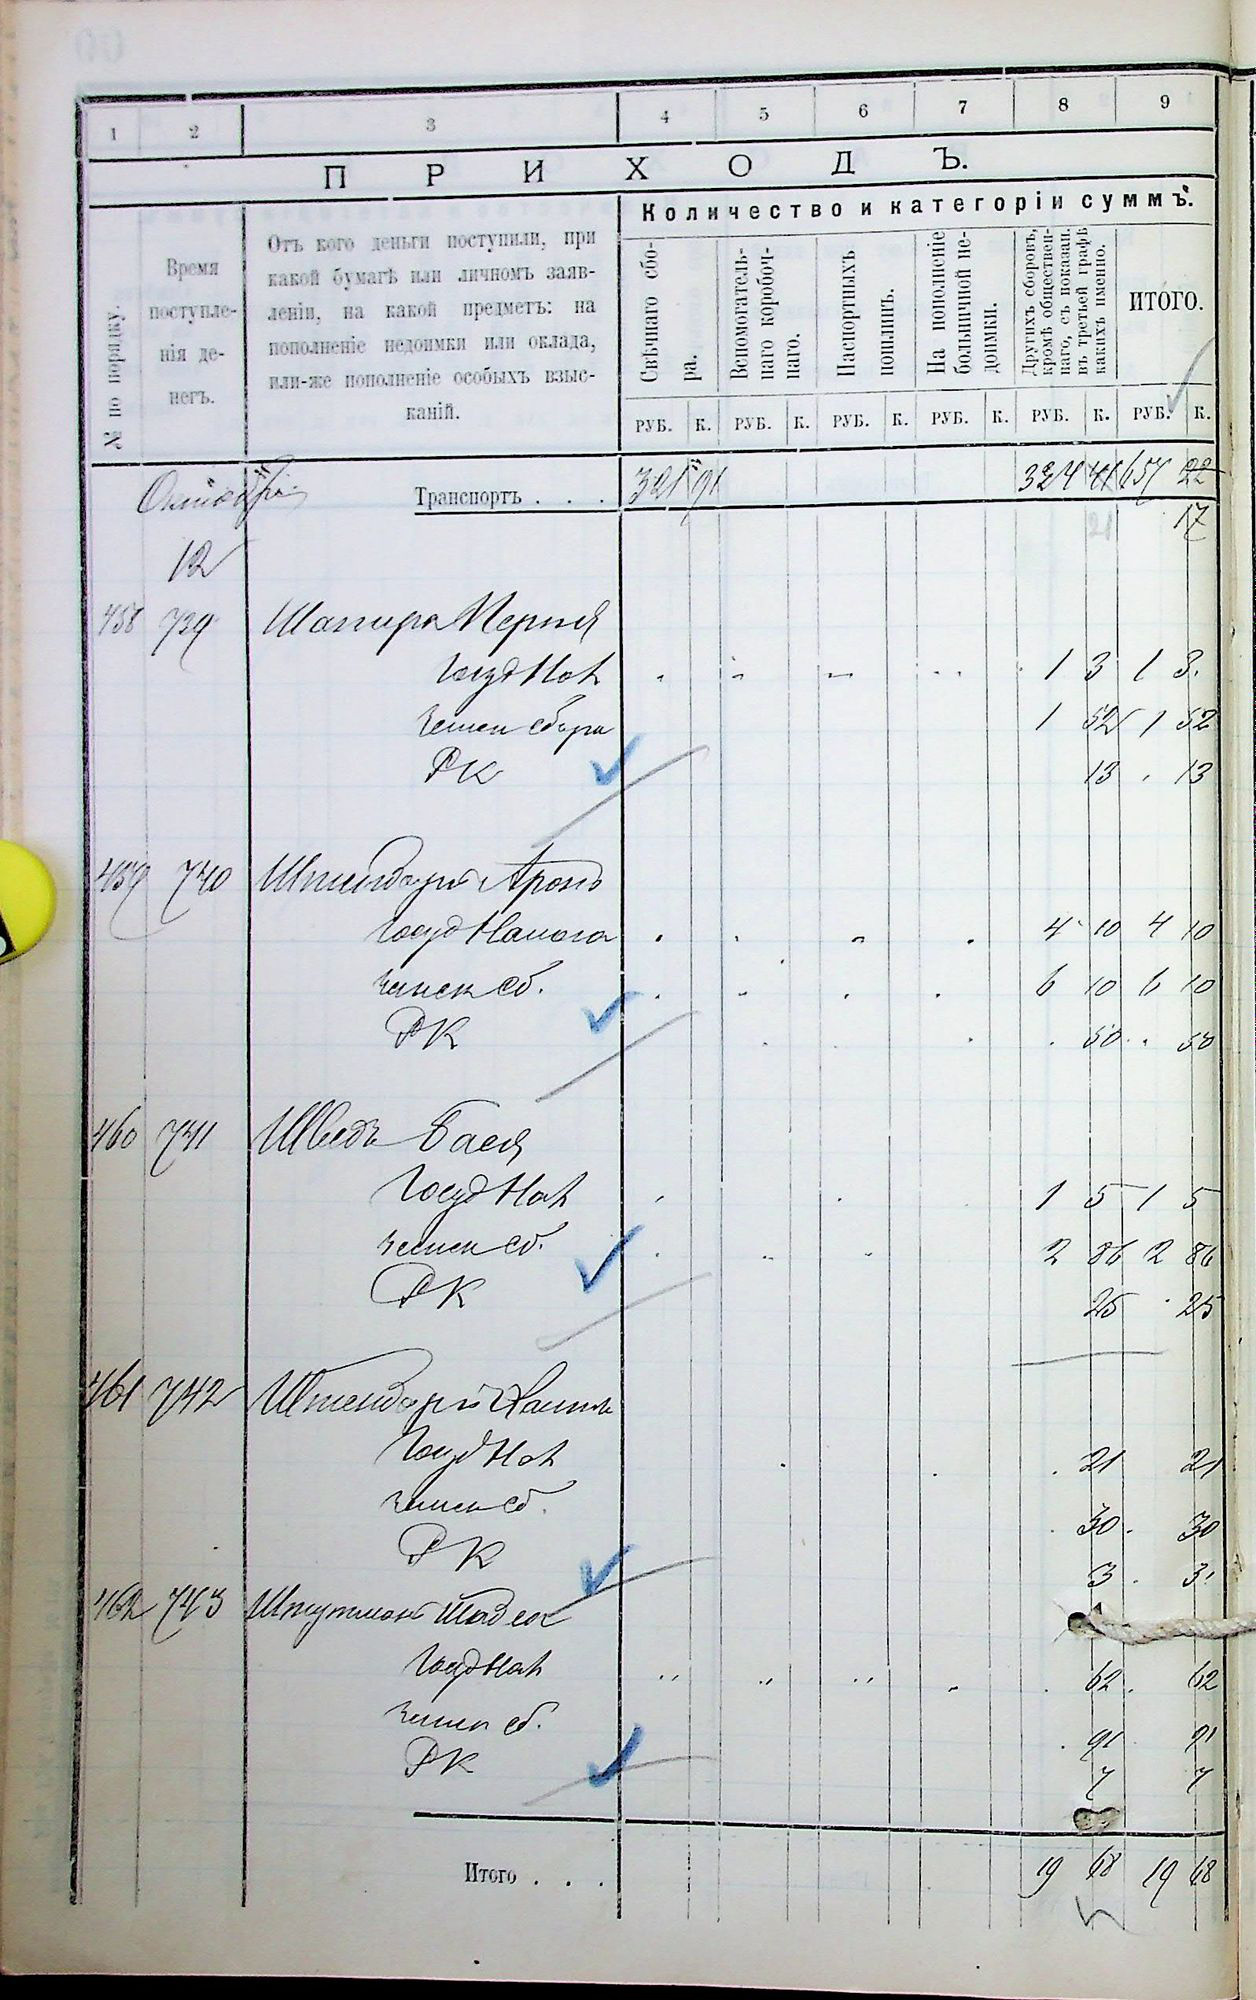 1 2 3 4 5 6 7 8 9
ПРИХОДЪ.
Количество и категоріи суммъ.
№ по порядку.
Время
поступле-
нія де-
негъ.
Отъ кого деньги поступили, при
какой бумагѣ или личномъ заяв-
леніи, на какой предметъ: на
пополненіе недоимки или оклада,
или-же пополненіе особыхъ взыс-
каній.
Свѣчнаго сбо-
ра.
Вспомогатель-
наго коробоч-
наго.
Паспортныхъ
пошлинъ.
На пополненіе
больничной не-
доимки.
Другихъ сборовъ,
кромѣ обществен-
наго, съ показан.
въ третьей графѣ
какихъ именно.
ИТОГО.
РУБ. К. РУБ. К. РУБ. К. РУБ. К. РУБ. К. РУБ. К.
Октября Транспортъ . . . 321 91 324 41 657 22
21 17
12
458 739 Шапира Мерня
Госуд Нал 1 3 1 3.
земск сбора 1 52 1 52
РК 13 13
459 740 Штендаръ Аронъ
Госуд Налога 4 10 4 10
земск сб. 6 10 6 10
РК 50 50
460 741 Шведъ Бася
Госуд Нал 1 5 1 5
земск сб. 2 86 2 86
РК 25 25
461 742 Штендаръ
Госуд Нал 21 21
земск сб. 30 30
РК 3 3
462 743 Штутманъ
Госуд Нал 62 62
земск сб. 91 91
РК 7 7
Итого . . . 19 68 19 68